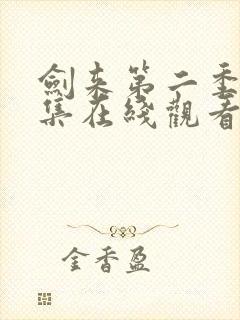 劍来第二季
集在綫觀看
金香盈